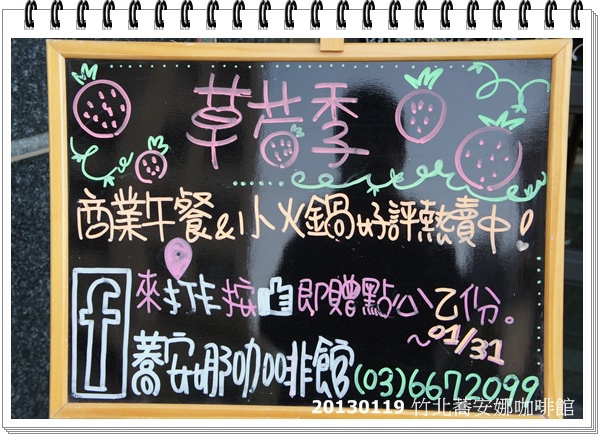 草莓季
商業午餐&小火鍋好評熱賣中!
來打卡按即贈點心乙份。
~01/31
f
蕎安娜咖啡館(03)6672099
20130119 竹北蕎安娜咖啡館